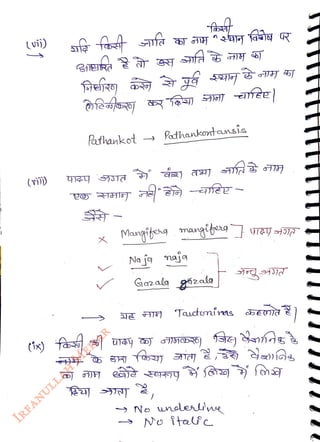 किसी
(vii) यदि किसी जाति का नाम ^ स्थान विशेष पर
आधारित है तो उस जाति के नाम का
निर्धारण करने से पूर्व स्थान के नाम का
लैटिनीकरण कर दिया जाना चाहिए।
Pathankot → Pathankontansis
(viii) पादप जगत में वंश तथा जाति के नाम
एक समान नहीं होने चाहिए -
जैसे -
× Mangifera mangifera ] पादप जगत
✓ Naja naja
✓ Gazala gazala ] जन्तु जगत
→ यह नाम Tautonimns कहलाते हैं।
(ix) किसी पादप का नामकरण जिस वैज्ञानिक के
के द्वारा किया जाता है, उस वैज्ञानिक
का नाम छोटे स्वरूप में लिखा में लिख
दिया जाता है,
→ No underline
→ No italic